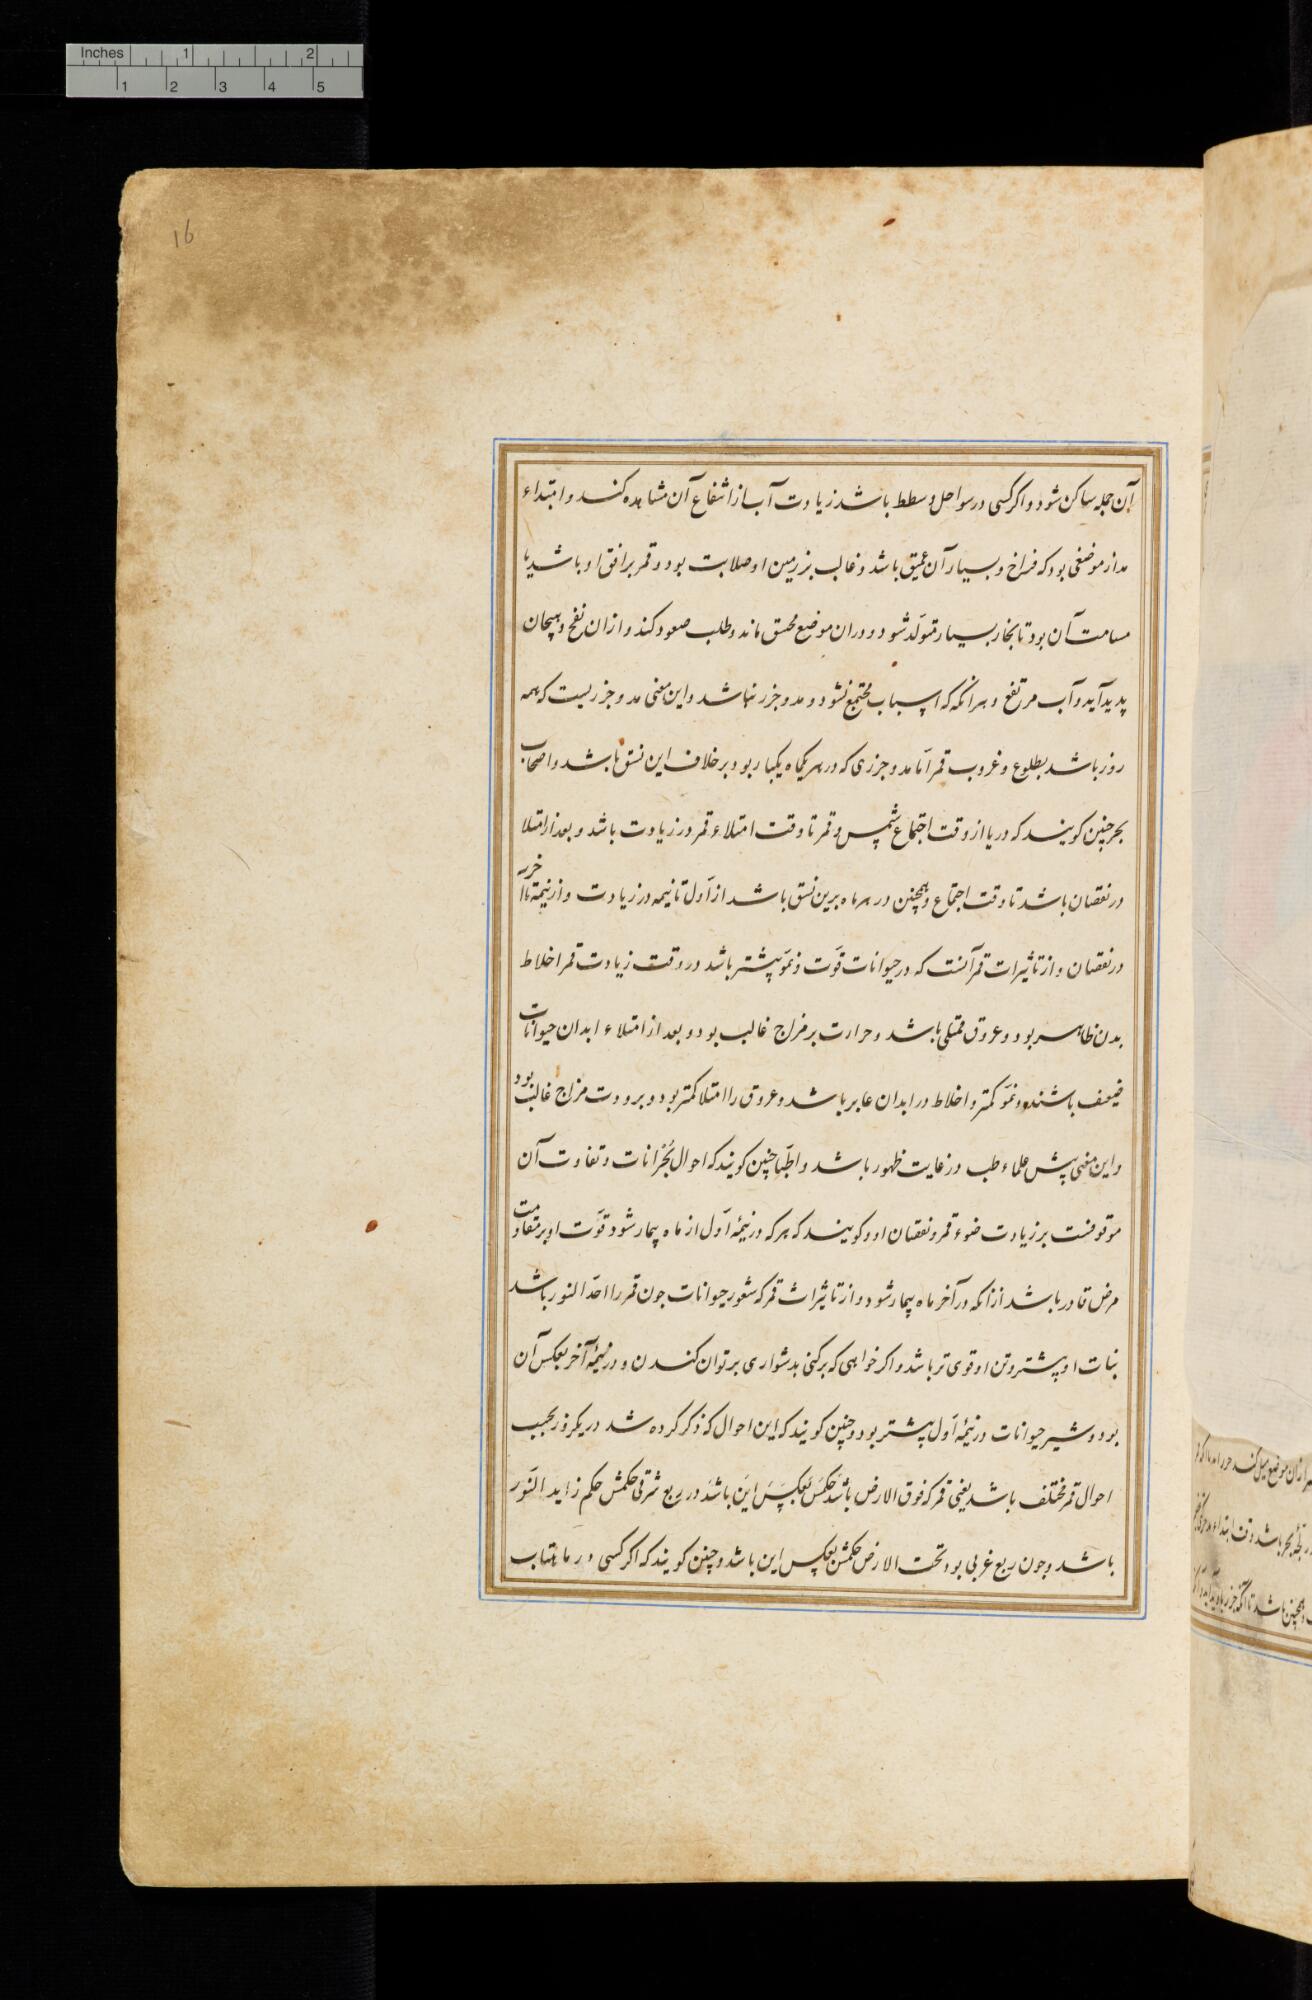 Inches 1 2
1 2 3 4 5
16
آن جمله ساکن شود و اکر کسی در سواحل و سطط باشد زیادت آب از انتفاع آن مشاهده کند و ابتداء
مد از موضعی بود که فراخ و بسیار آن عمیق باشد و غالب بر زمین او صلابت بود و قمر بر افق او باشد یا
مسامت آن بود تا بخار بسیار متولّد شود و در ان موضع محتسق ماند و طلب صعود کند و از ان نفخ و هیجان
پدید آید و آب مرتفع و هر انکه که اسباب مجتمع نشود و مد و جزر نباشد و این معنی مد و جزریست که همه
روز باشد بطلوع و غروب قمر امّا مد و جزری که در هر یکماه یکبار بود بر خلاف این نسق باشد و اصحاب
بحر چنین کویند که دریا از وقت اجتماع شمس و قمر تا وقت امتلاء قمر در زیادت باشد و بعد از امتلا
در نقصان باشد تا وقت اجتماع و همچنین در هر ماه برین نسق باشد از اوّل تا نیمه در زیادت و از نیمه تا آخر
در نقصان و از تاثیرات قمر آنست که در حیوانات قوّت و نموّ بیشتر باشد در وقت زیادت قمر اخلاط
بدن ظاهر بود و عروق ممتلی باشد و حرارت بر مزاج غالب بود و بعد از امتلاء ابدان حیوانات
ضیعف باشند و نموّ کمتر و اخلاط در ابدان عابر باشد و عروق را امتلا کمتر بود و برودت مزاج غالب بود
و این معنی پیش علماء طب در غایت ظهور باشد و اطبّا چنین کویند که احوال بُحْرانات و تفاوت آن
موقوفست بر زیادت ضوء قمر و نقصان او و کویند که هر که در نیمهٔ اوّل از ماه بیمار شود قوّت او بر مقاومت
مرض قادر باشد از انکه در آخر ماه بیمار شود و از تاثیرات قمر که شعور حیوانات جون قمر را احدّ النور باشد
نبات او بیشتر و تن او قوی تر باشد و اکر خواهی که بر کنی بدشواری بر توان کندن و در نیمهٔ آخر بعکس آن
بود و شیر حیوانات در نیمهٔ اوّل بیشتر بود و چنین کویند که این احوال که ذکر کرده شد در یکروز بحسب
احوال قمر مختلف باشد یعنی قمر که فوق الارض باشد حکمش بعکس این باشد در ربع شرقی حکمش حکم زاید النّور
باشد و جون ربع غربی بود تحت الارض حکمش بعکس این باشد و چنین کویند که اکر کسی در ماهتاب